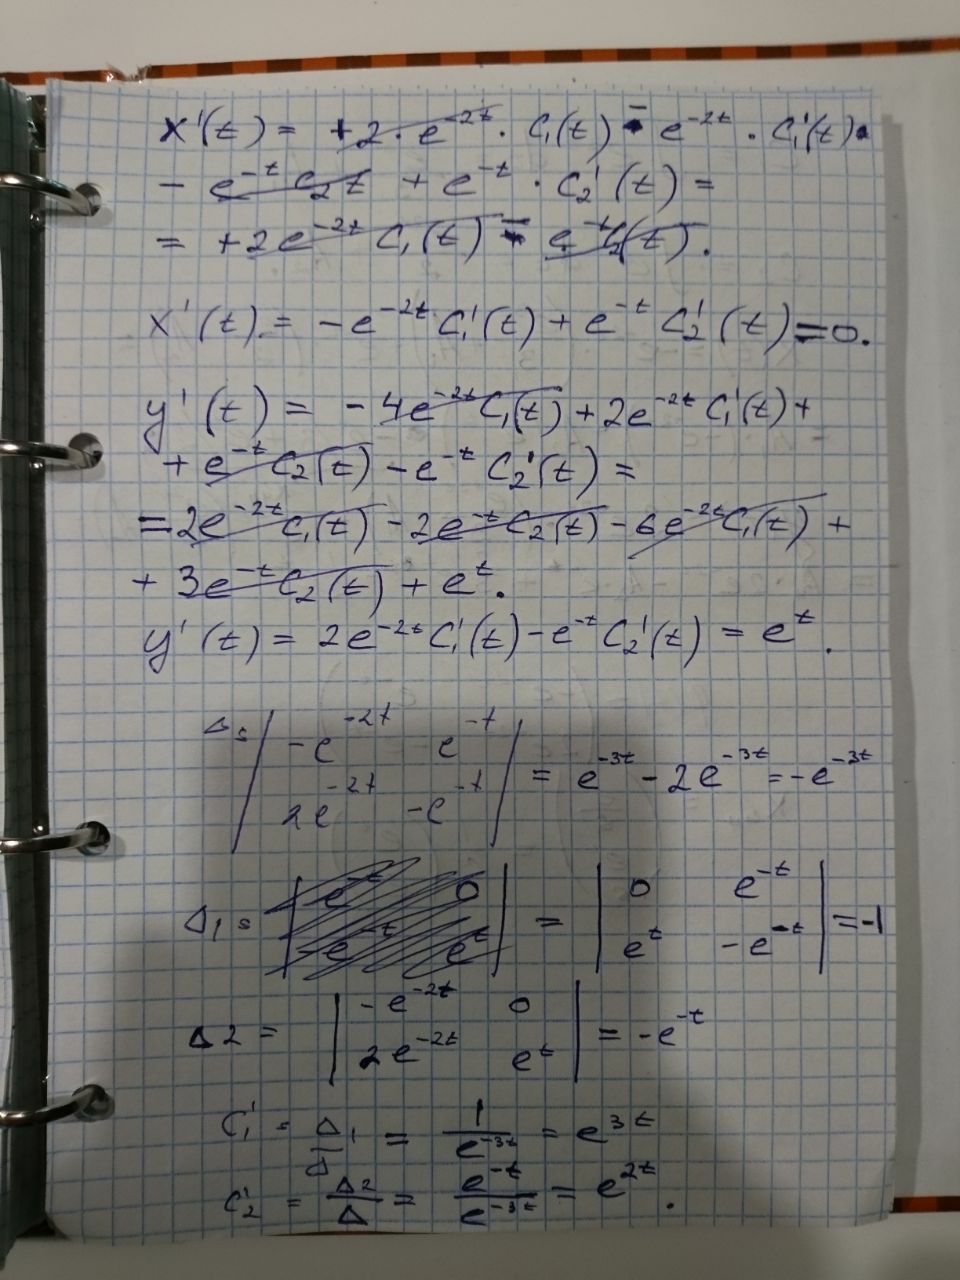 x'(t) = +2·e^{-2t}·C₁(t) - e^{-2t}·C₁'(t)·
- e^{-t} C₂t + e^{-t}·C₂'(t) =
= +2e^{-2t} C₁(t) - e^{-t}C₂(t).
x'(t) = -e^{-2t} C₁'(t) + e^{-t} C₂'(t) = 0.
y'(t) = -4e^{-2t} C₁(t) + 2e^{-2t} C₁'(t) +
+ e^{-t} C₂(t) - e^{-t} C₂'(t) =
= 2e^{-2t} C₁(t) - 2e^{-t} C₂(t) - 6e^{-2t} C₁(t) +
+ 3e^{-t} C₂(t) + e^t.
y'(t) = 2e^{-2t} C₁'(t) - e^{-t} C₂'(t) = e^t.
Δ = | -e^{-2t} e^{-t} | = e^{-3t} - 2e^{-3t} = -e^{-3t}
2e^{-2t} -e^{-t}
Δ₁ = | e^{-t} 0 | = | 0 e^{-t} | = -1
-e^{-t} e^t e^t -e^{-t}
Δ2 = | -e^{-2t} 0 | = -e^{-t}
2e^{-2t} e^t
C₁' = Δ₁/Δ = 1/e^{-3t} = e^{3t}
C₂' = Δ2/Δ = e^{-t}/e^{-3t} = e^{2t}.